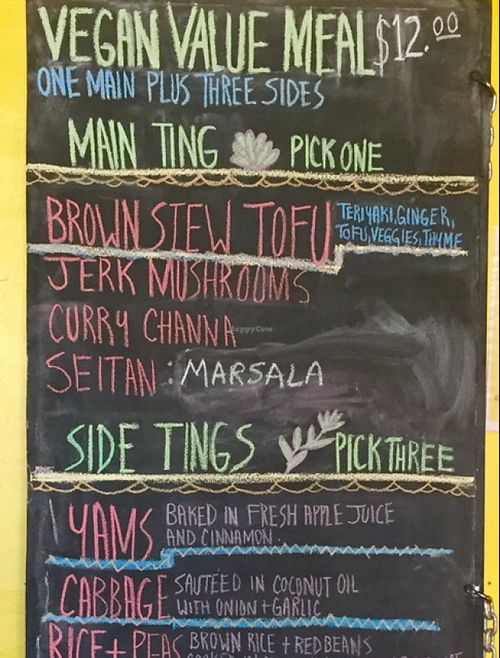 VEGAN VALUE MEAL $12.00
ONE MAIN PLUS THREE SIDES
MAIN TING PICK ONE
BROWN STEW TOFU TERIYAKI, GINGER,
TOFU, VEGGIES, THYME
JERK MUSHROOMS
CURRY CHANNA
HappyCow
SEITAN : MARSALA
SIDE TINGS PICK THREE
YAMS BAKED IN FRESH APPLE JUICE
AND CINNAMON.
CABBAGE SAUTÉED IN COCONUT OIL
WITH ONION + GARLIC
RICE + PEAS BROWN RICE + RED BEANS